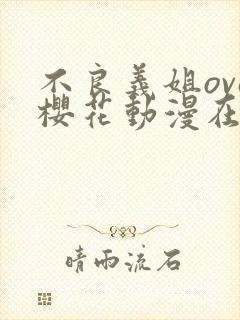 不良義姐ova
櫻花動漫在
晴雨流石